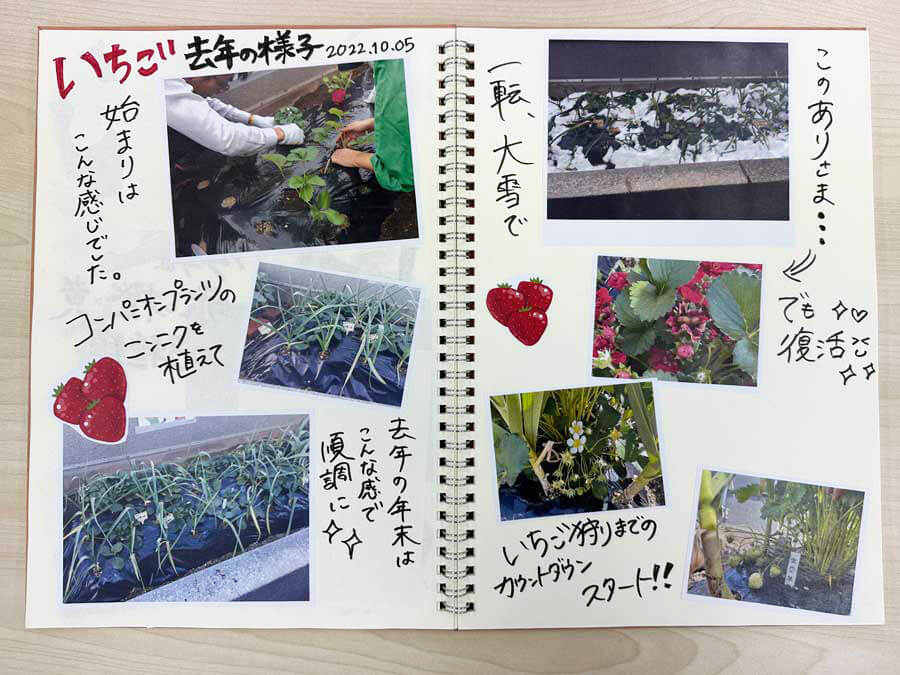 いちご 去年の様子 2022.10.05
始まりは
こんな感じでした。
コンパニオンプランツの
ニンニクを
植えて
去年の年末は
こんな感で
順調に
一転、大雪で
このありさま・・・
でも
復活
いちご狩りまでの
カウントダウン
スタート!!